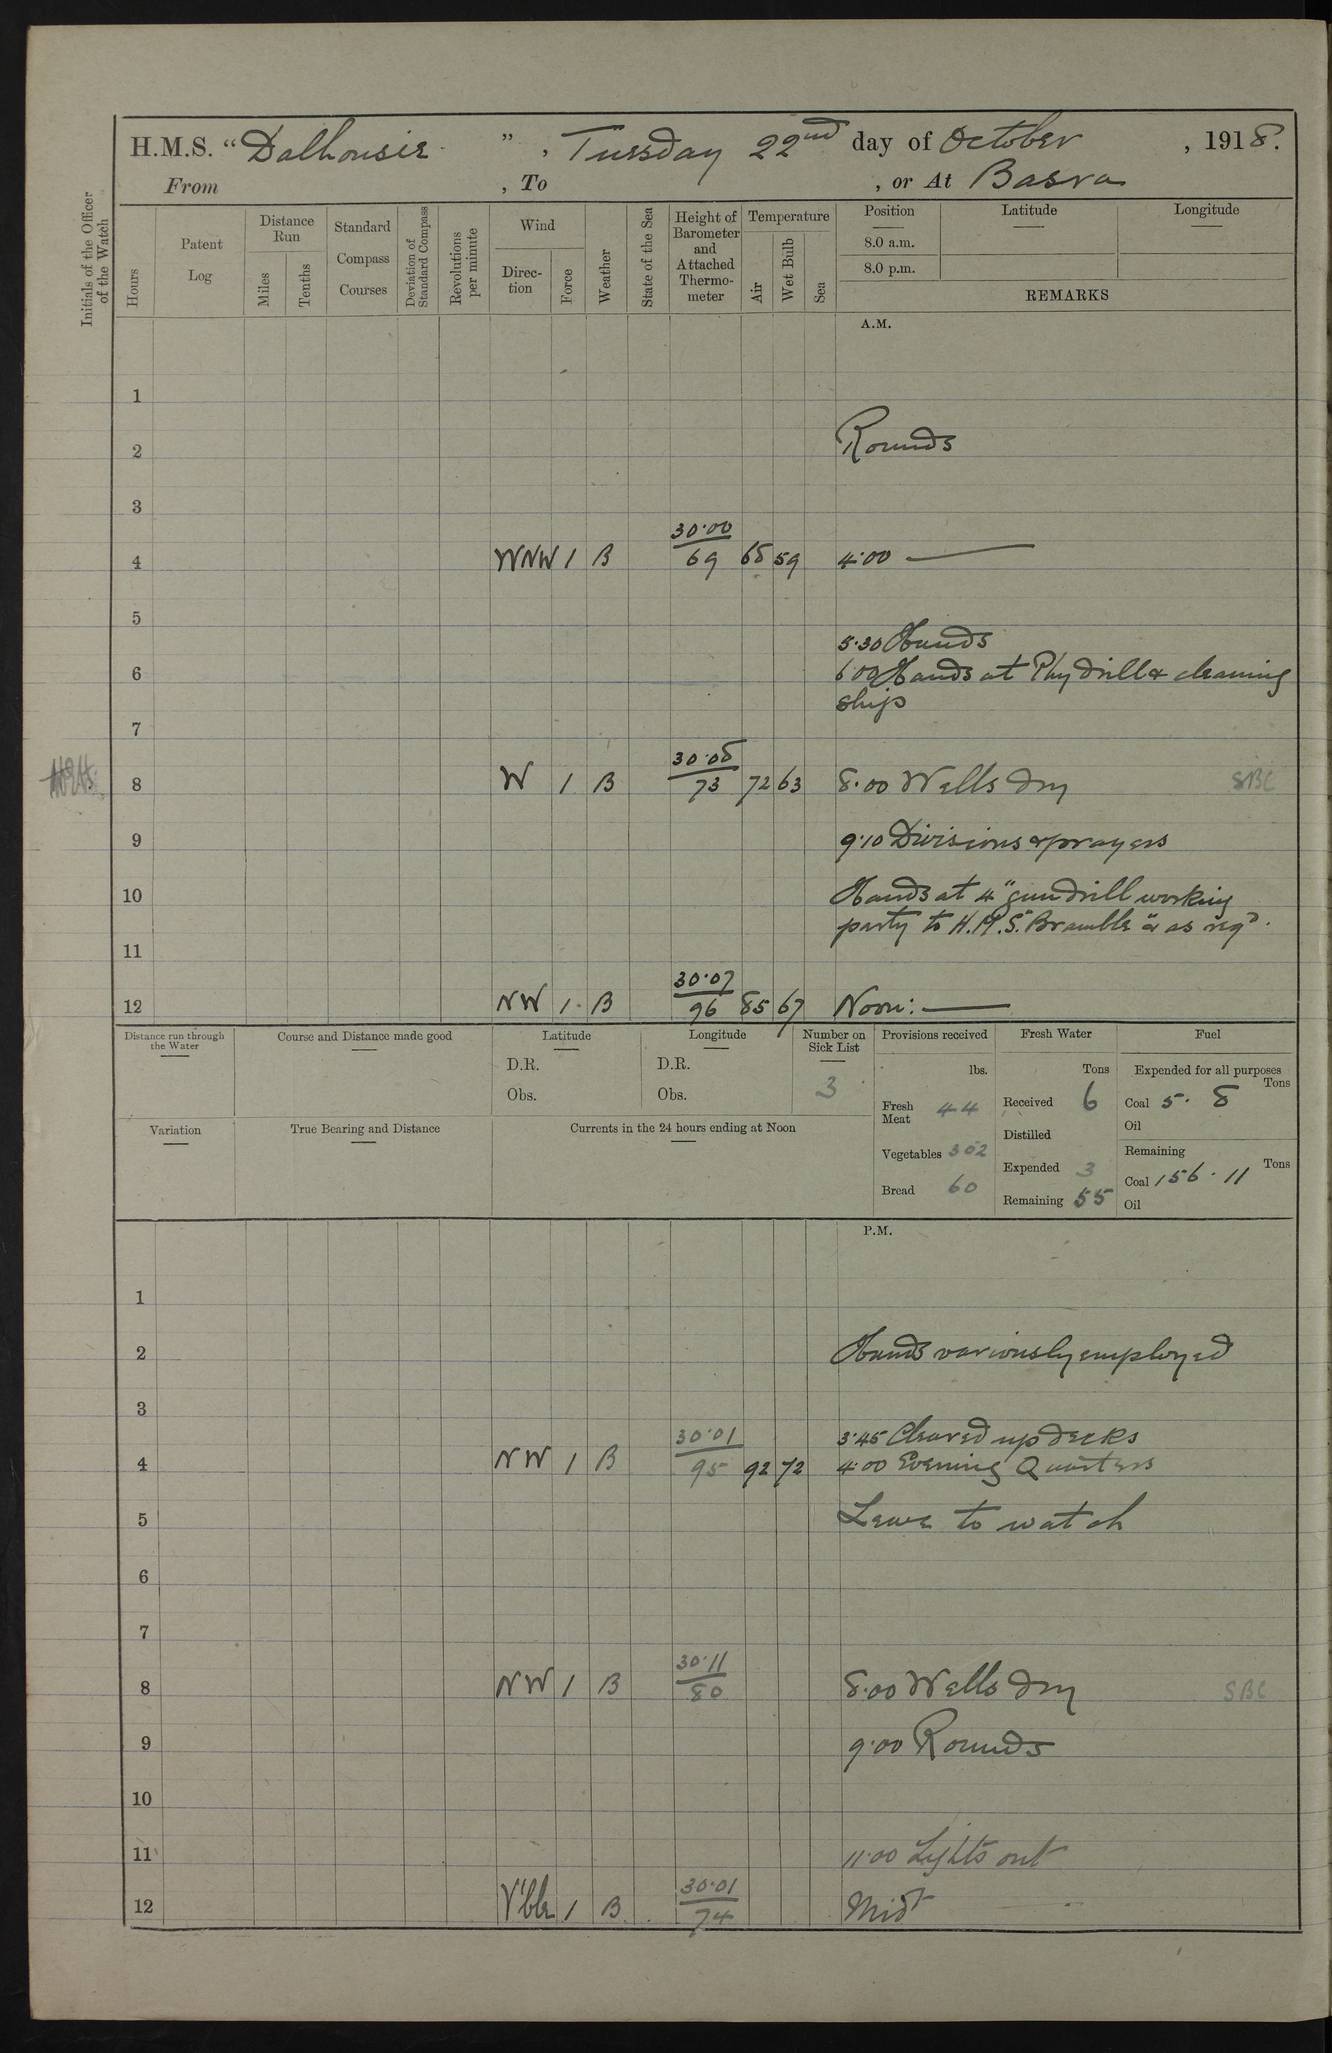 H.M.S. "Dalhousie", Tuesday 22nd day of October, 1918.
From , To , or At Basra
Initials of the Officer of the Watch
Hours
Patent Log
Distance Run
Miles
Tenths
Standard Compass Courses
Deviation of Standard Compass
Revolutions per minute
Wind
Direction
Force
Weather
State of the Sea
Height of Barometer and Attached Thermometer
Temperature
Air
Wet Bulb
Sea
Position Latitude Longitude
8.0 a.m.
8.0 p.m.
REMARKS
A.M.
1
2 Rounds
3
4 WNW 1 B 30.00 69 68 59 4.00
5
5.30 Hands
6 6.00 Hands at Phy drill & cleaning
ship
7
8 W 1 B 30.08 73 72 63 8.00 Wells dry SBC
9 9.10 Divisions & prayers
10 Hands at 4" gun drill working
party to H.M.S. "Bramble" & as reqd.
11
12 NW 1 B 30.07 96 85 67 Noon:
Distance run through the Water
Course and Distance made good
Latitude
D.R.
Obs.
Longitude
D.R.
Obs.
Number on Sick List
3
Variation
True Bearing and Distance
Currents in the 24 hours ending at Noon
Provisions received
lbs.
Fresh Meat 44
Vegetables 302
Bread 60
Fresh Water
Tons
Received 6
Distilled
Expended 3
Remaining 55
Fuel
Expended for all purposes
Tons
Coal 5. 8
Oil
Remaining
Tons
Coal 156.11
Oil
P.M.
1
2 Hands variously employed
3
3.45 Cleared up decks
4 NW 1 B 30.01 95 92 72 4.00 Evening Quarters
5 Leave to watch
6
7
8 NW 1 B 30.11 80 8.00 Wells dry SBC
9 9.00 Rounds
10
11 11.00 Lights out
12 V'ble 1 B 30.01 74 Midt